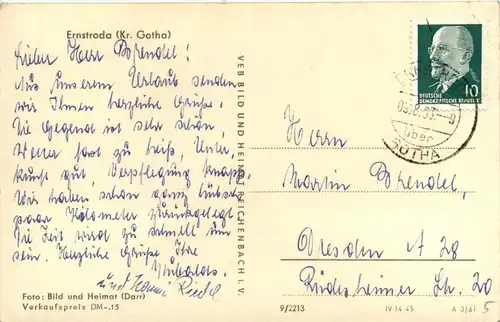 Ernstroda (Kr. Gotha)
Lieber Herr Brendel!
Aus unserem Urlaub senden
wir Ihnen herzliche Grüße.
Die Gegend ist sehr schön,
Wetter fast zu heiß, Unter,
kunft gut, Verpflegung knapp.
Wir haben schon ganz hübsch
paar Kilometer zurückgelegt.
Die Zeit wird zu schnell um
sein. Herzliche Grüße Ihre
und Hanni Riedel
Foto: Bild und Heimat (Darr)
Verkaufspreis DM -.15
VEB BILD UND HEIMAT REICHENBACH I. V.
9/2213
IV 14 45
A 3/61
5
10
DEUTSCHE
DEMOKRATISCHE REPUBLIK
über
GOTHA
Herrn
Martin Brendel,
Dresden A 28
Rüdesheimer Str. 20